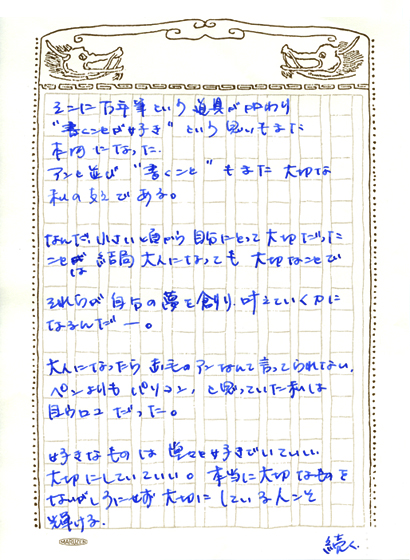 そこに万年筆という道具が加わり
"書くことが好き"という思いもまた
本物になった.
アンと並び"書くこと"もまた大切な
私の支えである。
なんだ、小さい頃から自分にとって大切だった
ことは結局大人になっても大切なことで
それらが自分の夢を創り、叶えていく力に
なるんだー。
大人になったら赤毛のアンなんて言ってられない、
ペンよりもパソコン、と思っていた私は
目ウロコだった。
好きなものは堂々と好きでいていい
大切にしていていい。本当に大切なものを
ないがしろにせず大切にしている人こそ
輝ける.
続く.
MARUZEN